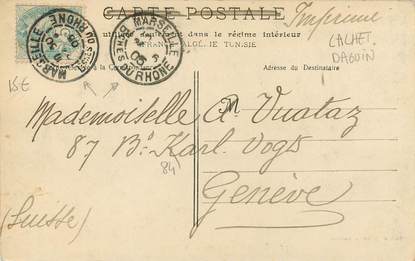 CARTE POSTALE
Imprimé
utilisée dans le régime intérieur
FRANCE, ALGÉRIE, TUNISIE
CACHET
DAGUIN
MARSEILLE
BCHES DU RHONE
MARSEILLE
BCHES DU RHONE
Adresse du Destinataire
15€
M
Mademoiselle A. Vuataz
87 Bd Karl Vogt
84
Genève
(Suisse)